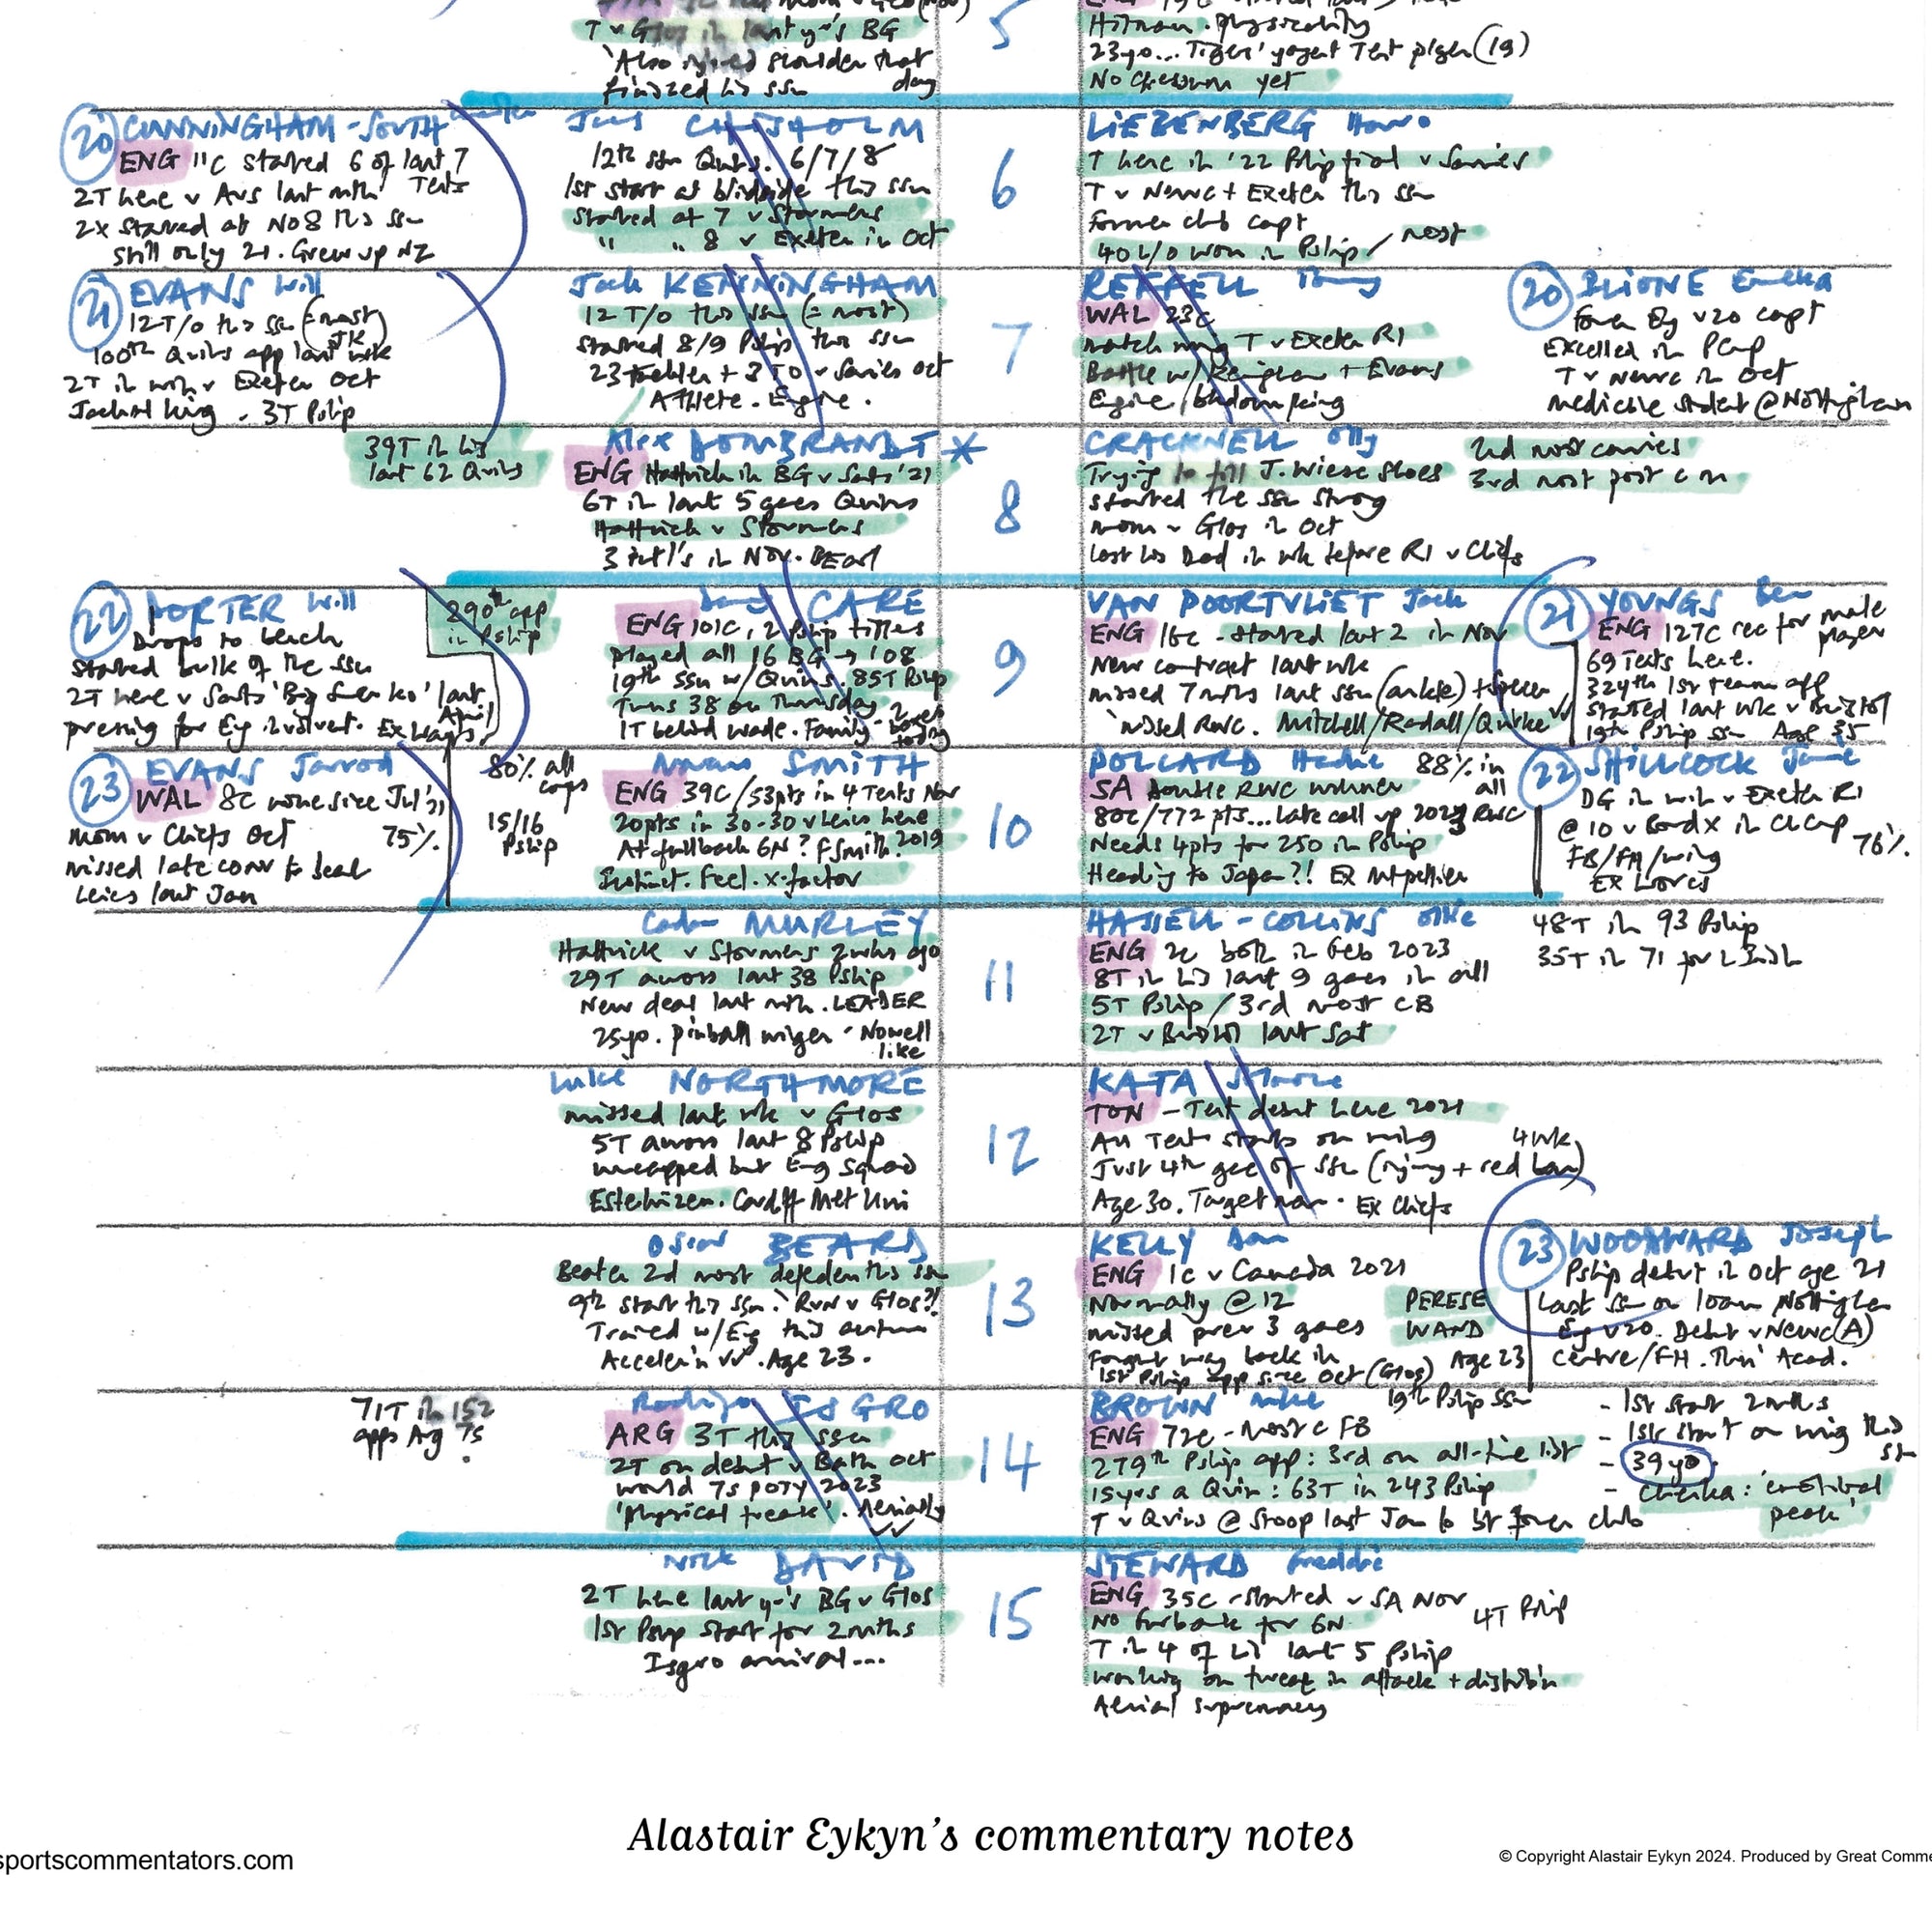 T v Glos in last yr's BG
'Also injured shoulder that
finished his ssn day
5
Hitman. physicality
23yo... Tigers' yngest Test plyer (19)
No Chessum yet
20 CUNNINGHAM-SOUTH
ENG 11C started 6 of last 7
Tests
2T here v Aus last mth
2x started at No8 this ssn
still only 21. Grew up NZ
CHISHOLM
12th ssn Quins. 6/7/8
1st start at blindside this ssn
Started at 7 v Stormers
" " 8 v Exeter in Oct
6
LIEBENBERG Hanro
T here in '22 Pship final v Sarries
T v Newc + Exeter this ssn
Former club capt
40 L/O won in Pship / most
21 EVANS Will
12 T/O this ssn (= most)
JK
100th Quins app last wk
2T in win v Exeter Oct
Jackal king . 3T Pship
Jack KENNINGHAM
12 T/O this ssn (= most)
Started 8/9 Pship this ssn
23 tackles + 3 TO v Sarries Oct
Athlete. Engine.
7
REFFELL Tommy
WAL 23c
match wing T v Exeter R1
Battle w/ Kenningham + Evans
Engine/
20 ILIONE Emeka
Former Eng v20 capt
Excelled in PCup
T v Newc in Oct
Medicine student @Nottingham
39T in his
last 62 Quins
Alex DOMBRANDT *
ENG Hattrick in BG v Saints '21
6T in last 5 games Quins
Hattrick v Stormers
3 int'l's in Nov. BEarl
8
CRACKNELL Olly
Trying to fill J. Wiese shoes
started the ssn strong
mom v Glos in Oct
Lost his Dad in wk before R1 v Chiefs
2nd most carries
3rd most post c m
22 PORTER Will
Drops to bench
Started bulk of the ssn
2T here v Saints 'Big Summer ko' last
April
pressing for Eng involvet. Ex Wasps.
290th app
in Pship
Danny CARE
ENG 101C, 2 Pship titles
played all 16 BG → '08
19th ssn w/ Quins. 85T Pship
Turns 38 on Thursday
1T behind Wade. Family
9
VAN POORTVLIET Jack
ENG 16c - started last 2 in Nov
New contract last wk
missed 7 mths last ssn (ankle)
missed RWC. Mitchell/Randall/Quirke
21 YOUNGS Ben
ENG 127C rec for male
player
69 Tests here.
324th 1st team app
Started last wk v Bristol
19th Pship ssn Age 35
23 EVANS Jarrod
WAL 8C none since Jul '21
Mom v Chiefs Oct 75%
missed late conv to beat
Leics last Jan
80% all
comps
15/16
Pship
Marcus SMITH
ENG 39C/53pts in 4 Tests Nov
20pts in 30-30 v Leics here
At fullback 6N? F Smith. 2019
Instinct. Feel. X-factor
10
POLLARD Handre 88% in
all
SA double RWC winner
80c/772 pts... late call up 2023 RWC
Needs 4pts for 250 in Pship
Heading to Japan?! Ex Mtpellier
22 SHILLCOCK Jamie
DG in win v Exeter R1
@ 10 v Bordx in CCup 76%
FB/FH/wing
Ex Worcs
Cadan MURLEY
Hattrick v Stormers 2wks ago
29T across last 38 Pship
New deal last mth. LEADER
25yo. pinball winger - Nowell
like
11
HASSELL-COLLINS Ollie
ENG 2c both in Feb 2023
8T in his last 9 games in all
5T Pship / 3rd most CB
2T v Bristol last Sat
48T in 93 Pship
35T in 71 for L Irish
Luke NORTHMORE
missed last wk v Glos
5T across last 8 Pship
uncapped but Eng Squad
Esterhuizen. Cardiff Met Uni
12
KATA Solomone
TON - Test debut here 2021
All Test starts on wing 4wk
Just 4th game of ssn (injury + red ban)
Age 30. Target man. Ex Chiefs
Oscar BEARD
Beaten 2nd most defenders this ssn
9th start this ssn. Run v Glos?!
Trained w/ Eng this autumn
Acceler'n ✓✓. Age 23.
13
KELLY Dan
ENG 1c v Canada 2021
Normally @ 12
missed prev 3 games
Fought way back in Age 23
1st Pship app since Oct (Glos)
PERESE
WAND
23 WOODWARD Joseph
Pship debut in Oct age 21
Last ssn on loan Nottingham
Eng v20. Debut v Newc (A)
Centre/FH. Thru' Acad.
71T in 152
apps Arg 7s
Rodrigo ISGRO
ARG 3T this ssn
2T on debut v Bath Oct
World 7s POTY 2023
'physical freak'. Aerially ✓✓
14
BROWN Mike 19th Pship ssn
ENG 72c - Most c FB
279th Pship app: 3rd on all-time list
15yrs a Quin: 63T in 243 Pship
T v Quins @ Stoop last Jan to bt former club
- 1st start 2mths
- 1st start on wing this
ssn
- 39yo
- Cheika: 'emotional
peak'
Nick DAVID
2T here last yr's BG v Glos
1st Pship start for 2mths
Isgro arrival...
15
STEWARD Freddie
ENG 35c - started v SA Nov 4T Pship
No Furbank for 6N
T in 4 of his last 5 Pship
Working on threat in attack + distrib'n
Aerial supremacy
Alastair Eykyn's commentary notes
sportscommentators.com
© Copyright Alastair Eykyn 2024. Produced by Great Comme